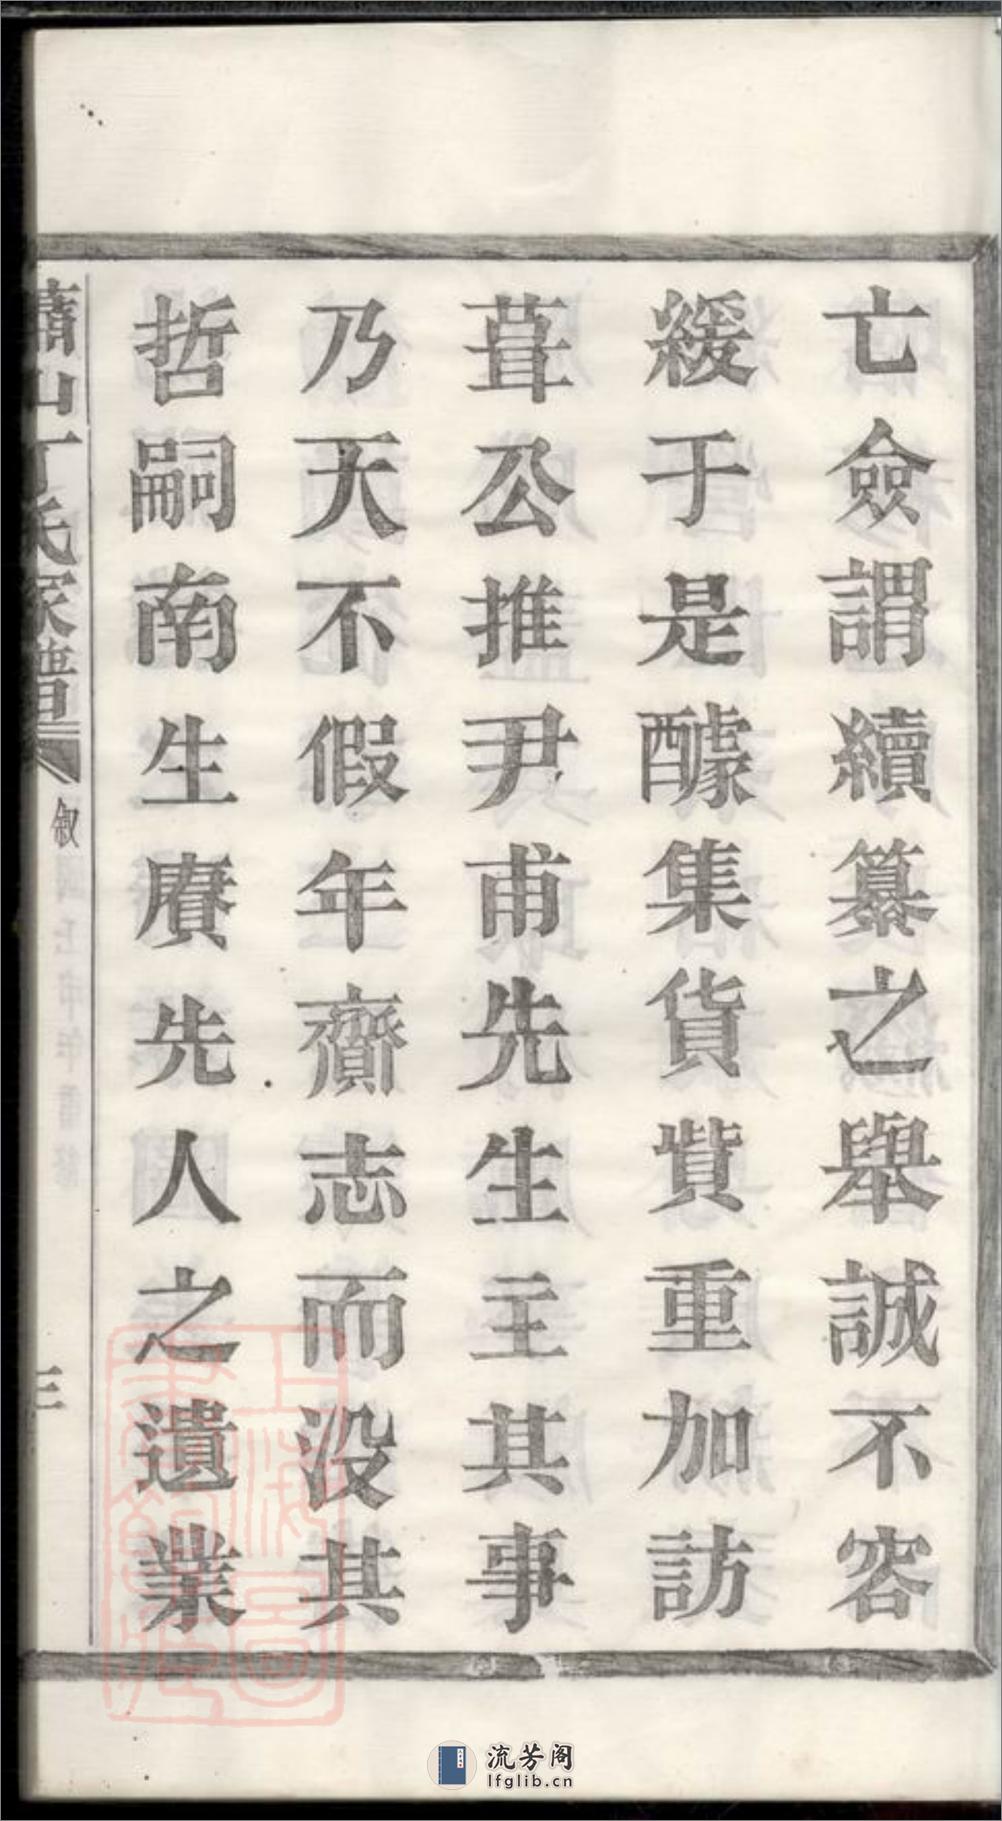 亡僉謂續纂之舉誠不容
緩于是醵集貨貲重加訪
葺公推尹甫先生主其事
乃天不假年齎志而没其
哲嗣南生賡先人之遺業
蕭山丁氏家譜
叙
三
上海圖書館藏
流芳阁
lfglib.cn